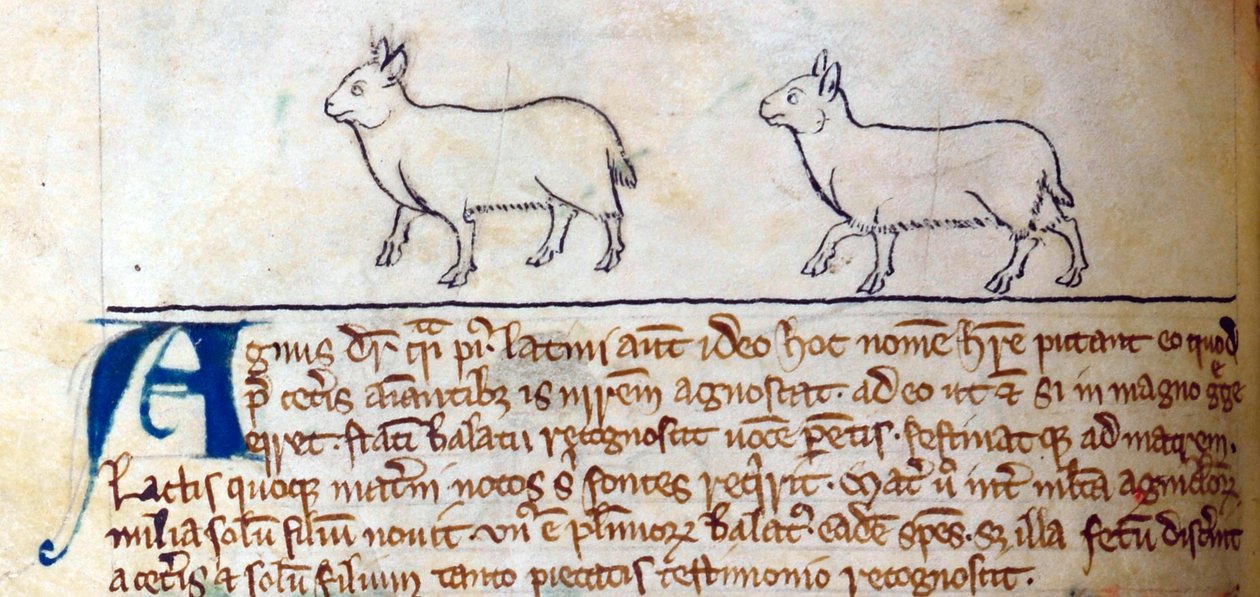 Agnus dr̄ qͣi pi᾽. latini aut̄ ideo hoc nom̄e hr̄e putant eo quod
p̄ cet̄is aīantibꝫ is m̄rem agnoscat. adeo ut ⁊ si in magno gͤge
erret. statī balatu recognoscit uoce ꝑētis. festinat qꝫ ad matrem.
Lactis quoqꝫ mat̄ni notos s̄ fontes reqͥrit. Mat̄ ů int̄ ml̄ta agnicl̄oꝝ
milia solū filiū nouit. vn᾽ ē pl̄imoꝝ balat᾽. eadē spēs. sꝫ illa fetū disc̄nit
a cet̄is ⁊ solū filium tanto pietatis testimonio recognoscit.